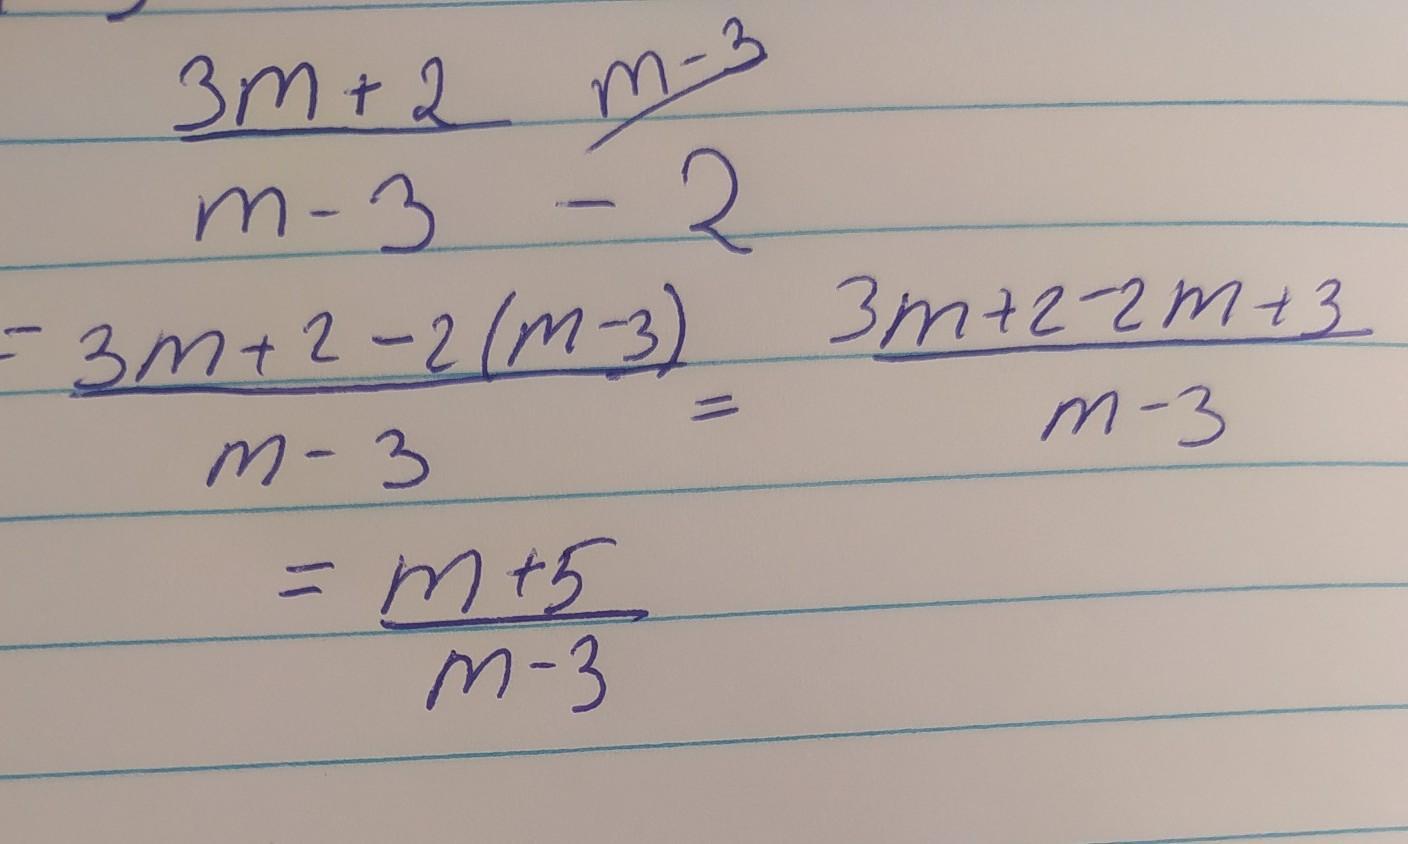 3m + 2 m-3
m - 3 - 2
= 3m + 2 - 2(m-3) = 3m+2-2m+3
m - 3 m-3
= m+5
m-3